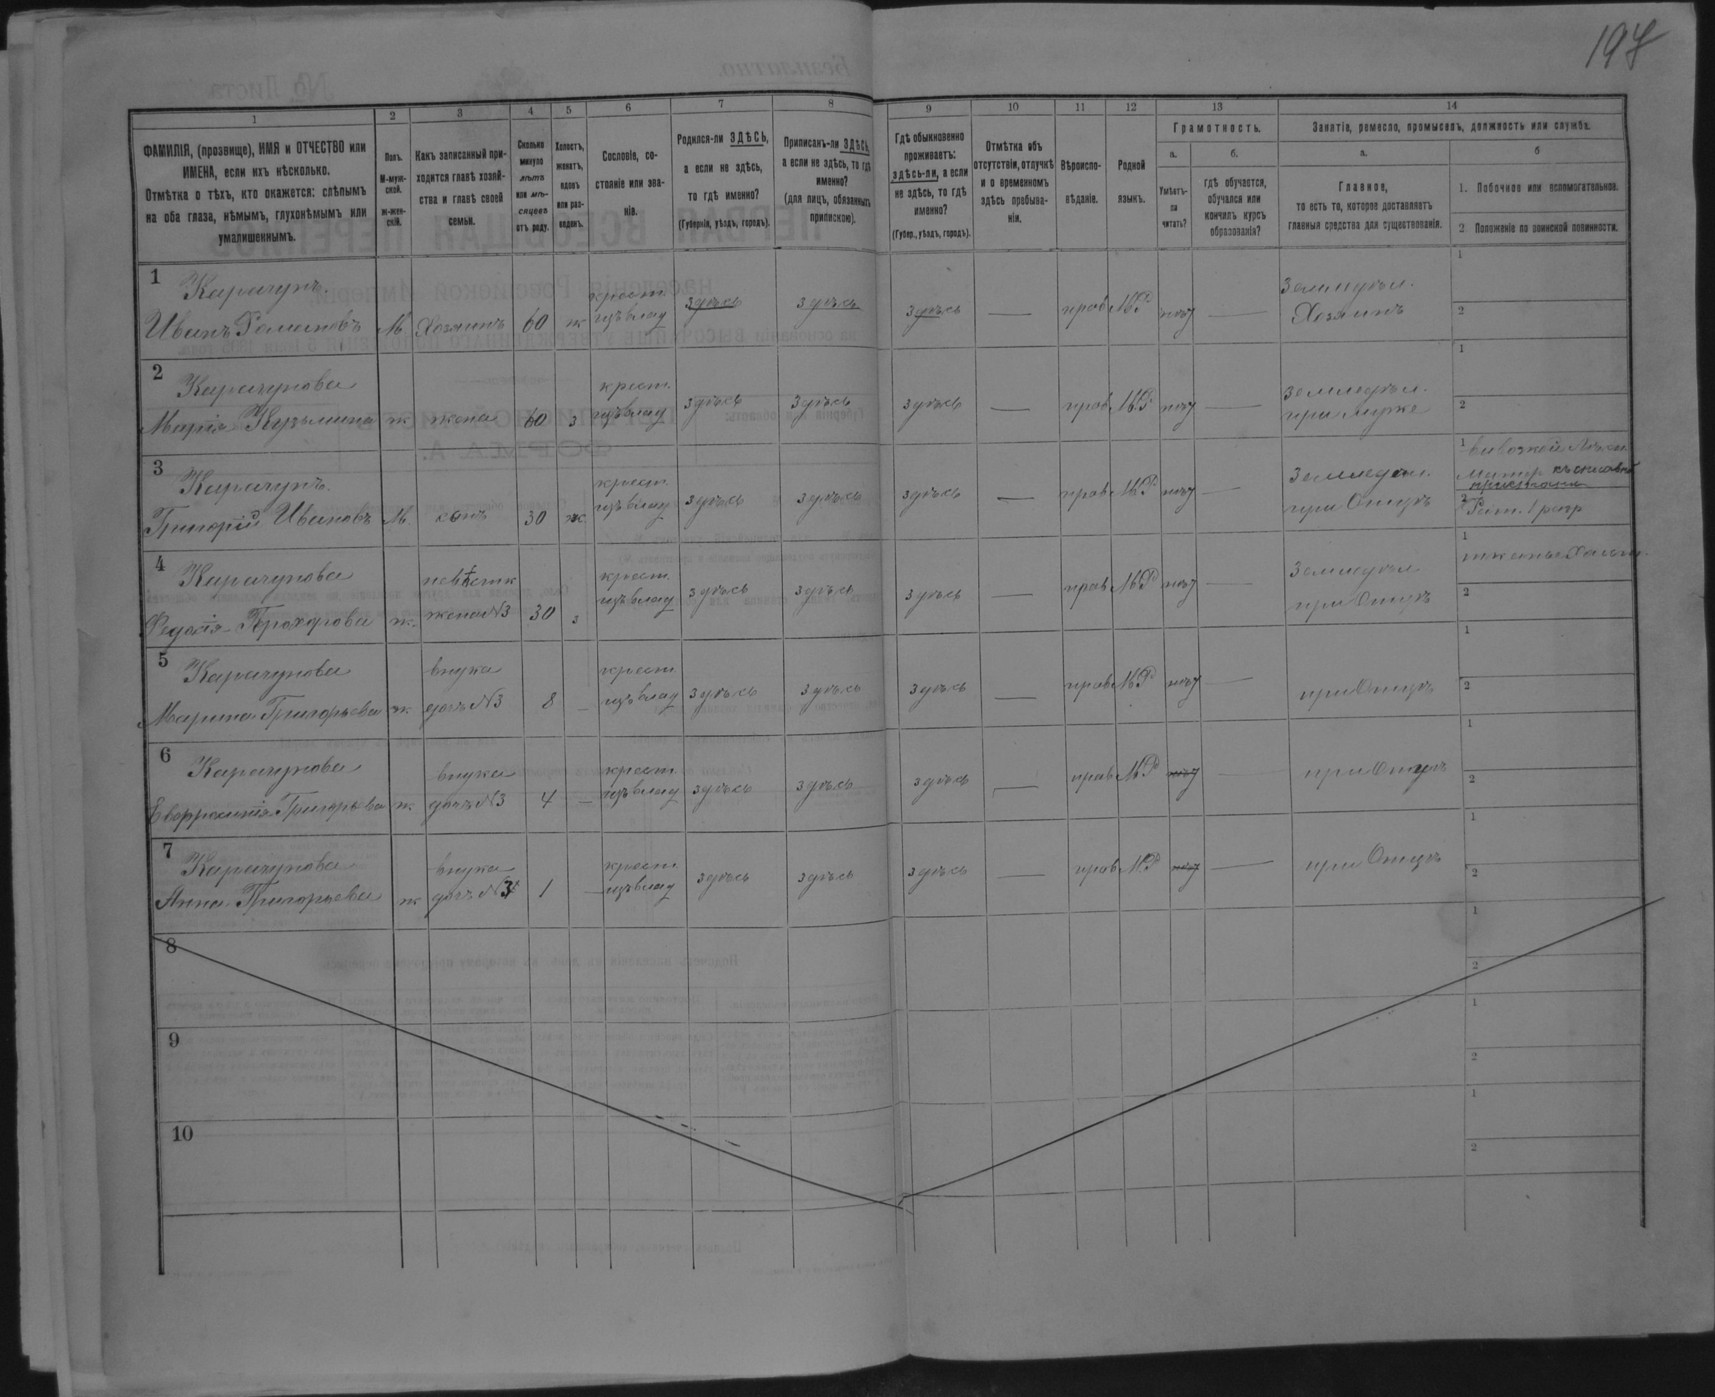 197
1 2 3 4 5 6 7 8 9 10 11 12 13 14
ФАМИЛІЯ, (прозвище), ИМЯ и ОТЧЕСТВО или ИМЕНА, если ихъ нѣсколько.
Отмѣтка о тѣхъ, кто окажется: слѣпымъ на оба глаза, нѣмымъ, глухонѣмымъ или умалишеннымъ.
Полъ. М-мужской. ж-женскій.
Какъ записанный приходится главѣ хозяйства и главѣ своей семьи.
Сколько минуло лѣтъ или мѣсяцевъ отъ роду.
Холостъ, женатъ, вдовъ или разведенъ.
Сословіе, состояніе или званіе.
Родился-ли ЗДѢСЬ, а если не здѣсь, то гдѣ именно? (Губернія, уѣздъ, городъ).
Приписанъ-ли ЗДѢСЬ, а если не здѣсь, то гдѣ именно? (для лицъ, обязанныхъ припискою).
Гдѣ обыкновенно проживаетъ: здѣсь-ли, а если не здѣсь, то гдѣ именно? (Губер., уѣздъ, городъ).
Отмѣтка объ отсутствіи, отлучкѣ и о временномъ здѣсь пребываніи.
Вѣроисповѣданіе.
Родной языкъ.
Грамотность.
а. Умѣетъ-ли читать?
б. гдѣ обучается, обучался или кончилъ курсъ образованія?
Занятіе, ремесло, промыселъ, должность или служба.
а. Главное, то есть то, которое доставляетъ главныя средства для существованія.
б
1. Побочное или вспомогательное.
2. Положеніе по воинской повинности.
1 Карачунъ Иванъ Романовъ М. Хозяинъ 60 ж крест. изъ влад здѣсь здѣсь здѣсь — прав М.Р нѣт — Земледѣл. Хозяинъ 1 2
2 Карачунова Марія Кузьмина ж жена 60 з крест. изъ влад здѣсь здѣсь здѣсь — прав М.Р нѣт — Земледѣл. при мужѣ 1 2
3 Карачунъ Григорій Ивановъ М. сынъ 30 ж. крест. изъ влад здѣсь здѣсь здѣсь — прав М.Р нѣт — Земледѣл. при Отцѣ 1 2
4 Карачунова Федосія Прохорова ж. невѣстк жена №3 30 з крест. изъ влад здѣсь здѣсь здѣсь — прав М.Р нѣт — Земледѣл при Отцѣ 1 2
5 Карачунова Марина Григорьева ж внука дочь №3 8 — крест. изъ влад здѣсь здѣсь здѣсь — прав М.Р нѣт — при Отцѣ 1 2
6 Карачунова Евфросинія Григорьева ж внука дочь №3 4 — крест. изъ влад здѣсь здѣсь здѣсь — прав М.Р нѣт — при Отцѣ 1 2
7 Карачунова Анна Григорьева ж внука дочь №3 1 — крест. изъ влад здѣсь здѣсь здѣсь — прав М.Р нѣт — при Отцѣ 1 2
8 1 2
9 1 2
10 1 2